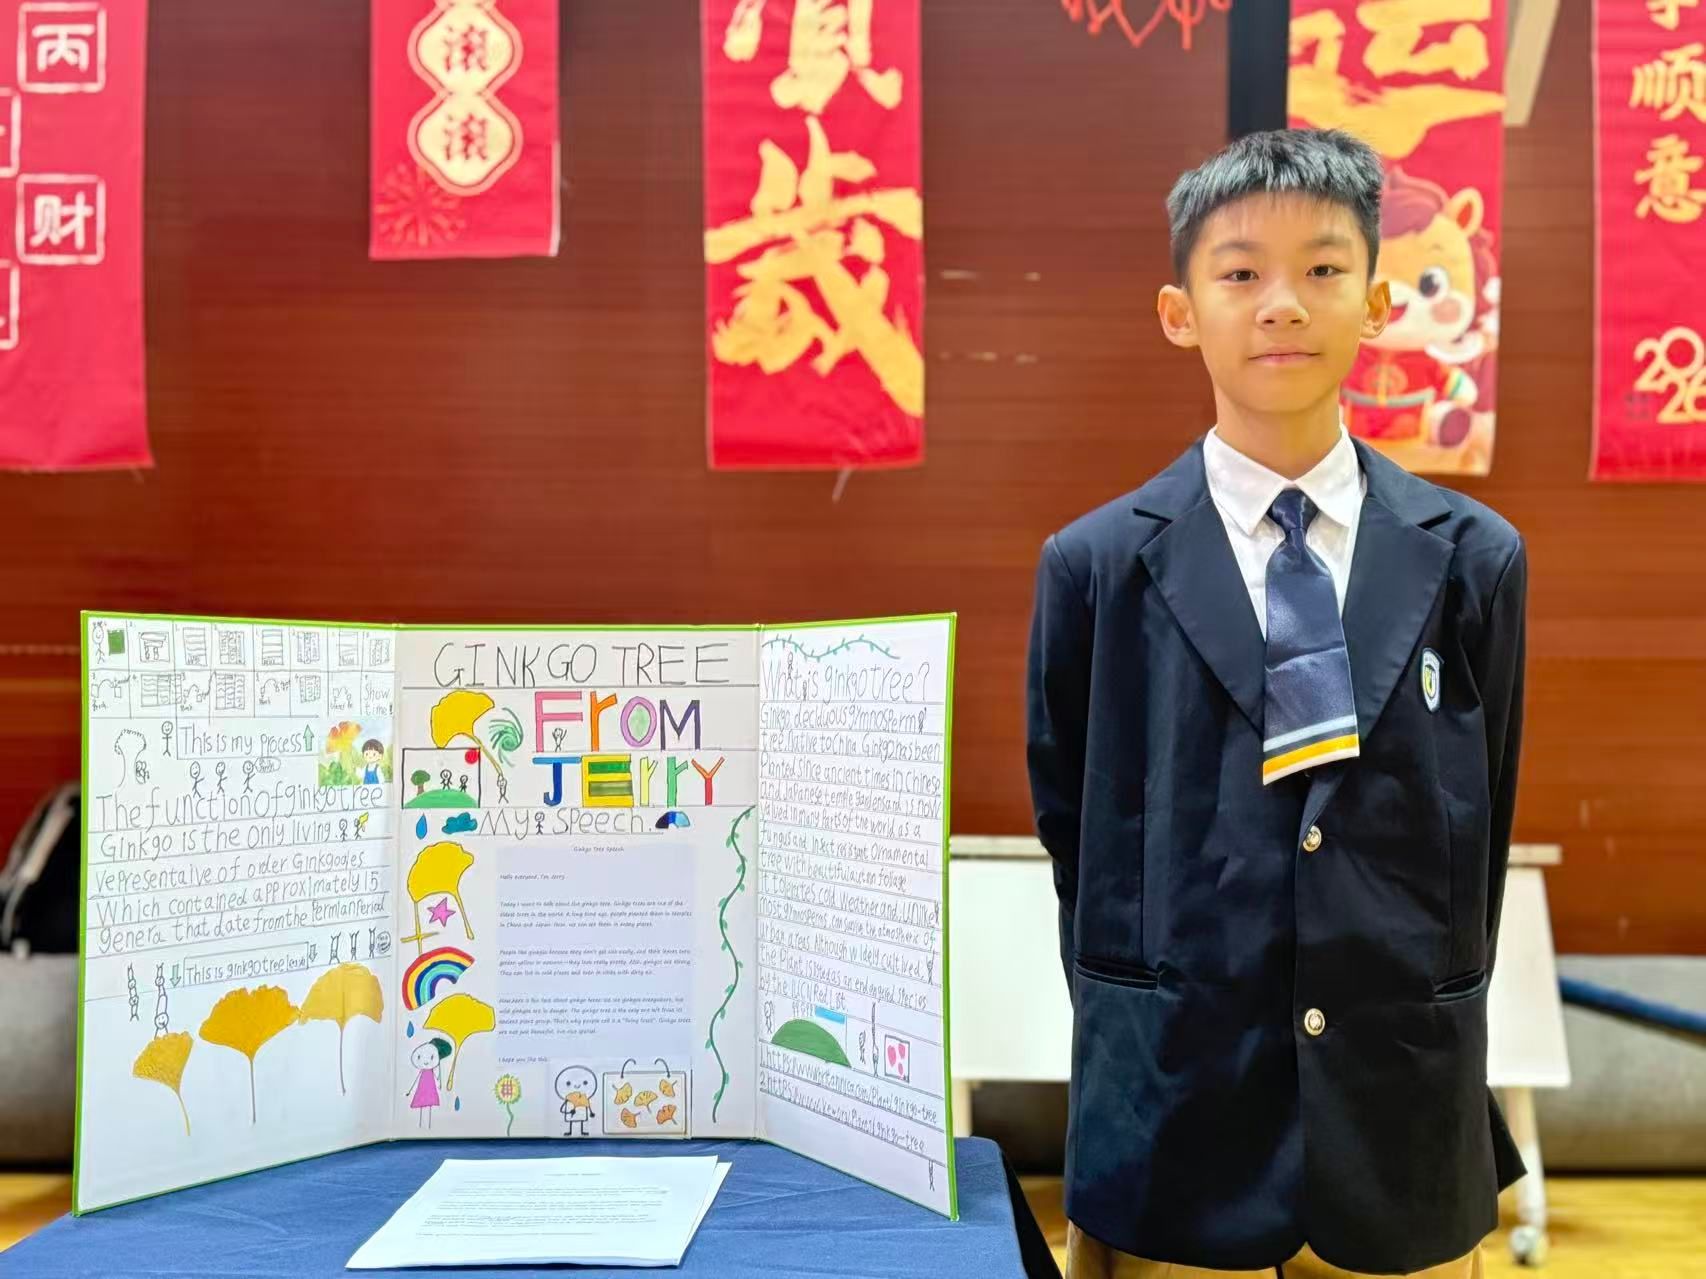 丙
财
滚
滚
贺
歲
运
顺
意
2026
GINKGO TREE
FROM
JERRY
My Speech.
This is my process
Show
time!
The function of ginkgo tree
Ginkgo is the only living
representaive of order Ginkgoales
Which contained approximately 15
genera that date from the Permian Period
This is ginkgo tree
Ginkgo Tree Speech
Hello everyone, I'm Jerry.
Today I want to talk about the ginkgo tree. Ginkgo trees are one of the
oldest trees in the world. A long time ago, people planted them in temples
in China and Japan. Now, we can see them in many places.
People like ginkgos because they don't get sick easily, and their leaves turn
golden yellow in autumn—they look really pretty. Also, ginkgos are strong.
They can live in cold places and even in cities with dirty air.
ginkgos everywhere, but
wild ginkgos are in danger. The ginkgo tree is the only one left from its
ancient plant group. That's why people call it a "living fossil". Ginkgo trees
are not just beautiful, but also special.
I hope you like this.
What is ginkgo tree?
Ginkgo, deciduous gymnosperm
tree native to China. Ginkgo has been
Planted since ancient times in Chinese
and Japanese temple gardens and is now
valued in many parts of the world as a
fungus and insect resistant Ornamental
tree with beautiful autumn foliage
it tolerates cold weather and, unlike
most gymnosperms, can survive the atmospheric of
urban areas. Although widely cultived,
the Plant is listed as an endangered Species
by the IUCN Red List.
1.https://www.britannica.com/Plant/ginkgo-tree